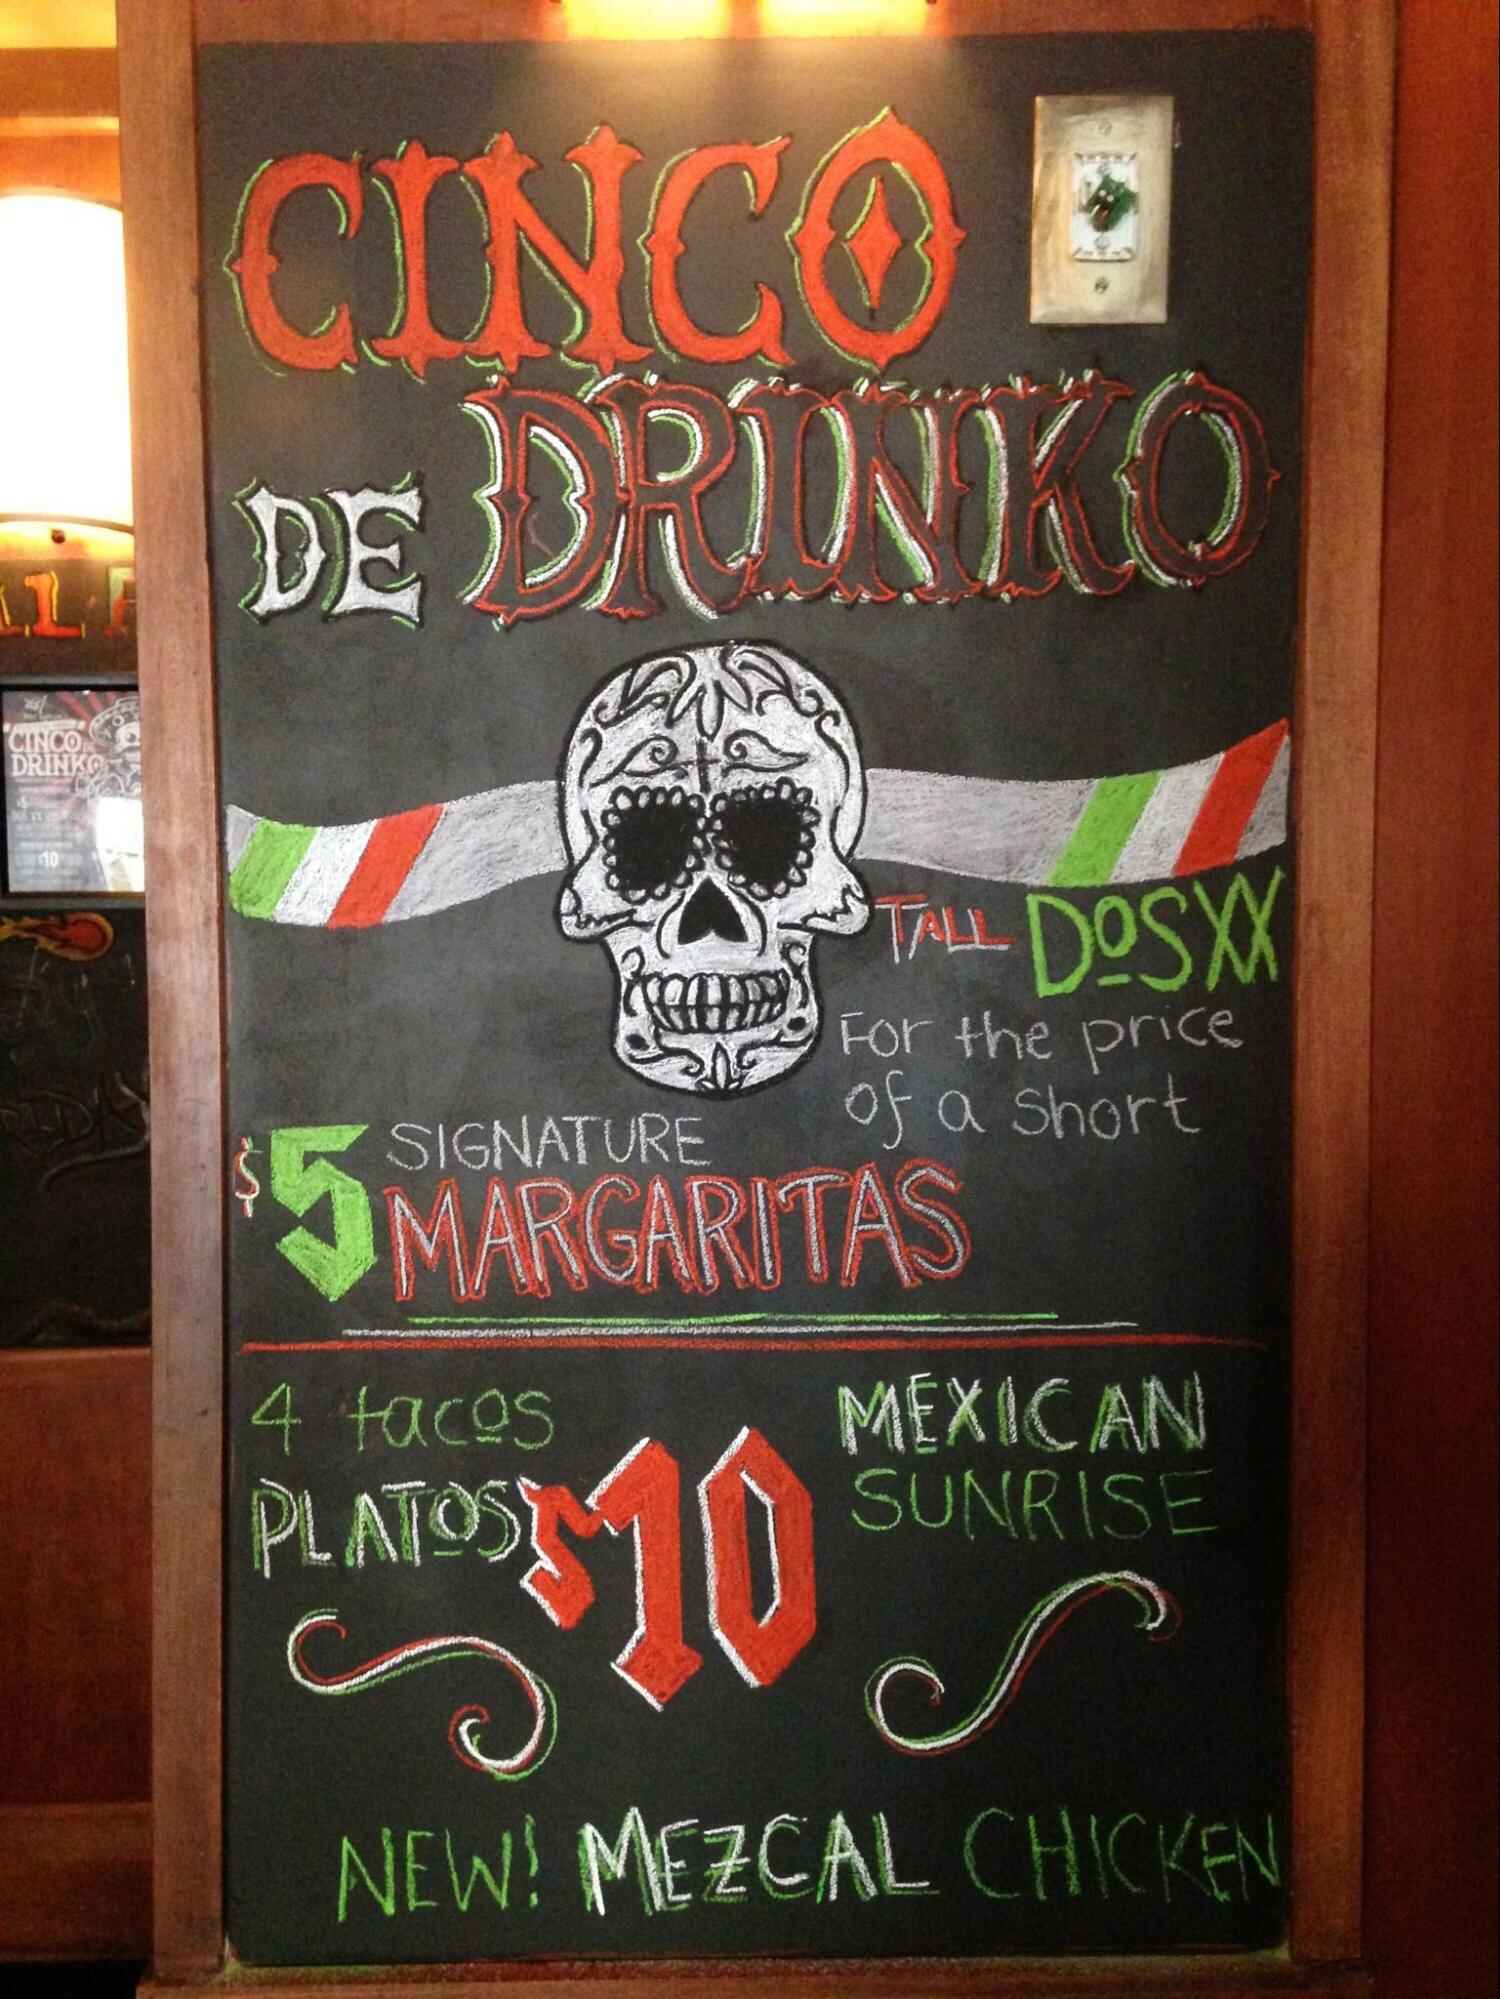 CINCO
DE DRINKO
TALL DOSXX
For the price
of a short
$5 SIGNATURE
MARGARITAS
4 tacos
PLATOS
$10
MEXICAN
SUNRISE
NEW! MEZCAL CHICKEN
CINCO DE
DRINKO
$10